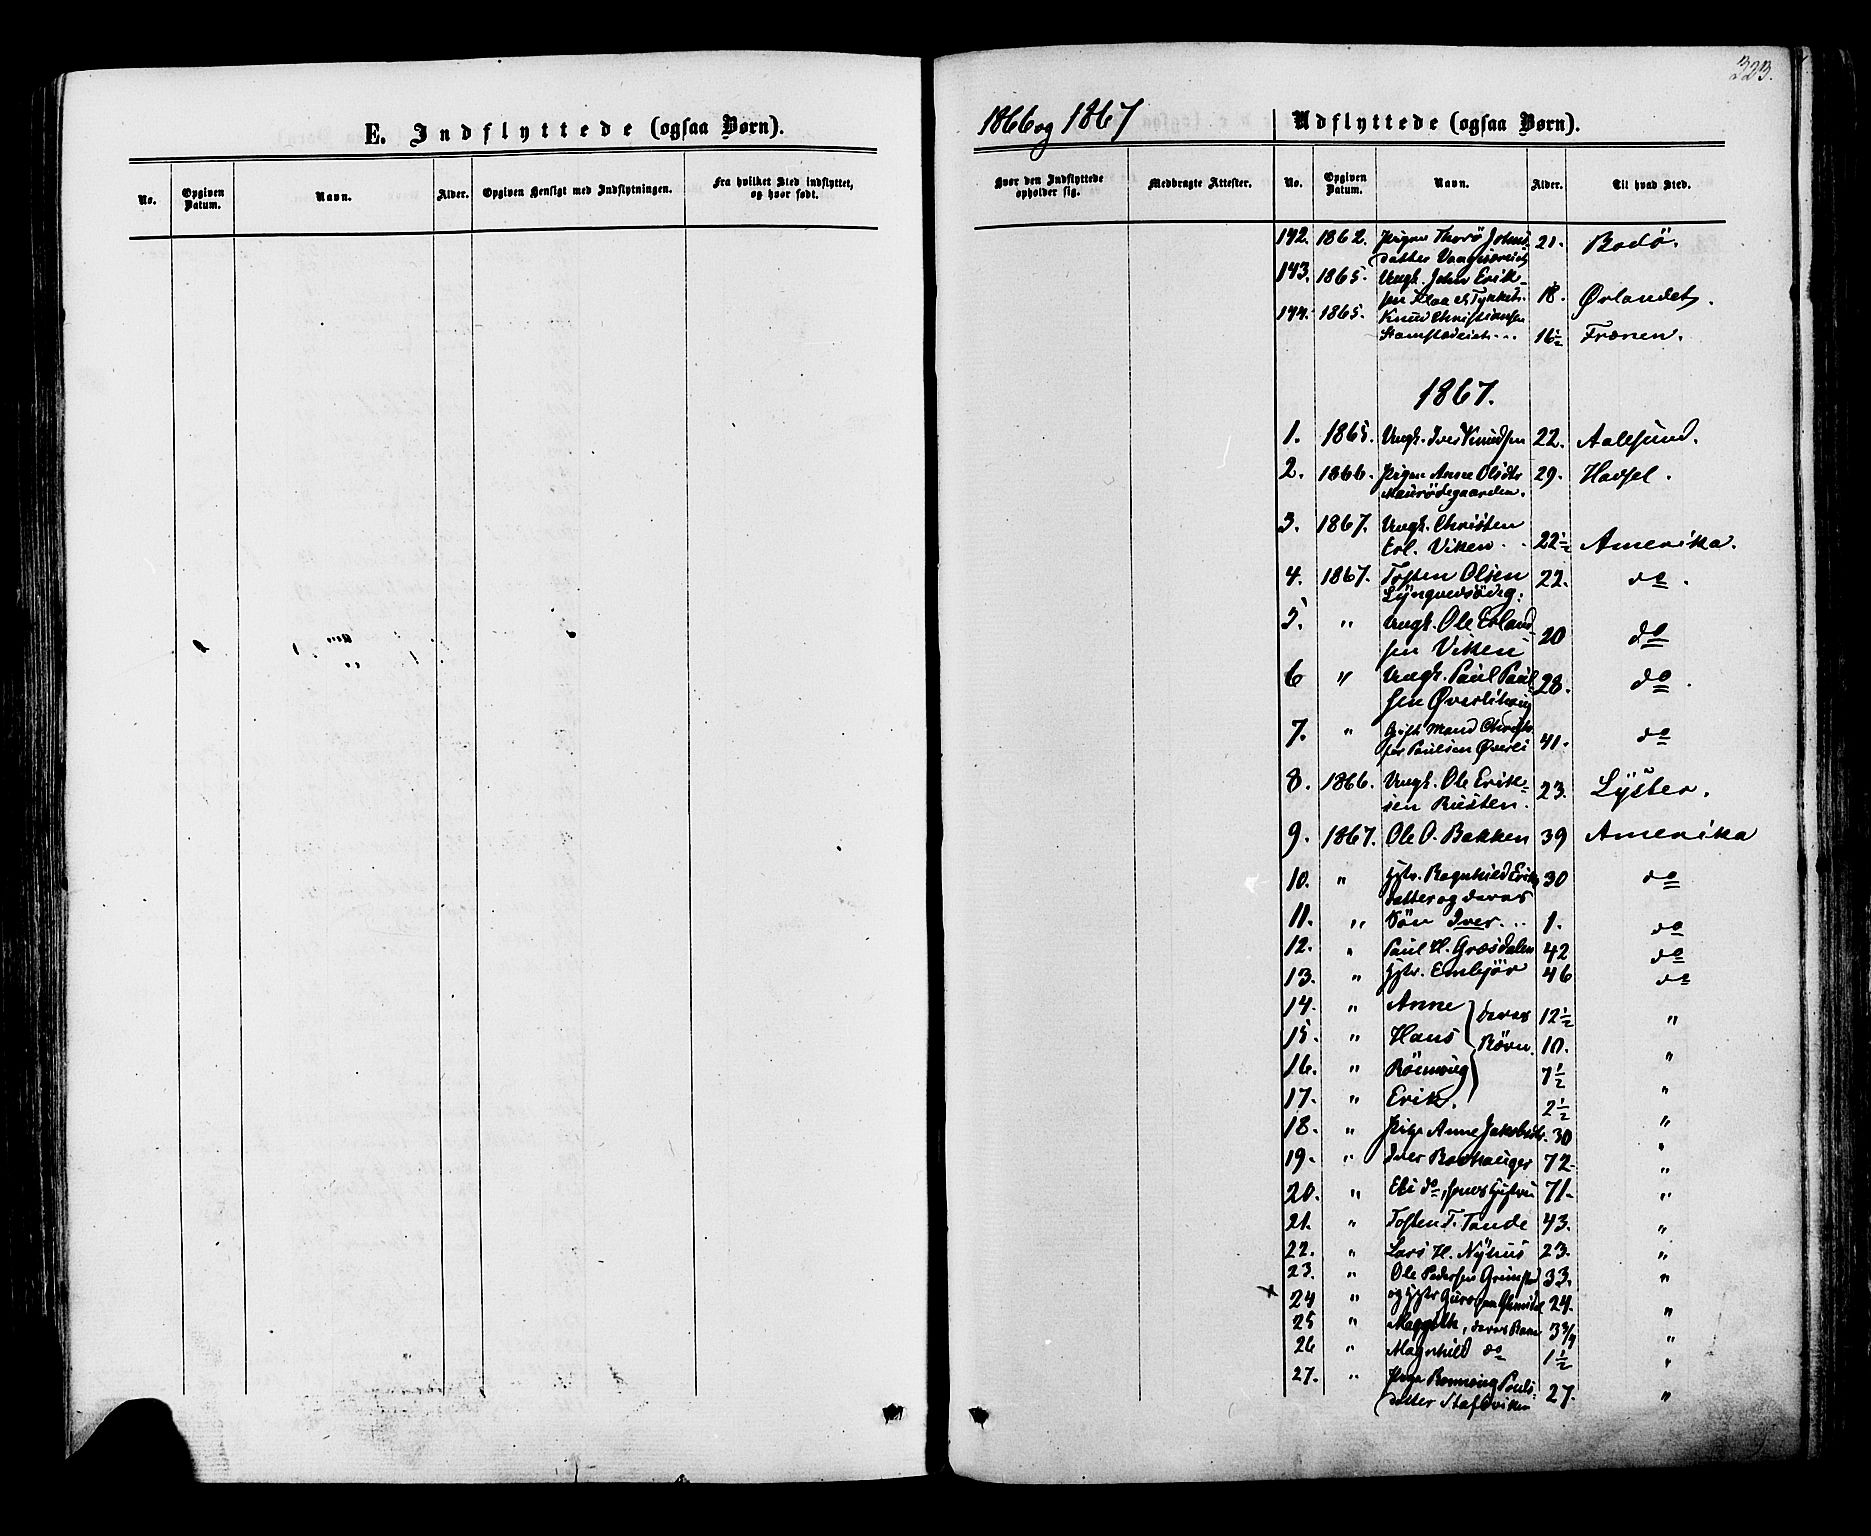 323.
E. Indflyttede (ogsaa Børn).
No.
Opgiven Datum.
Navn.
Alder.
Opgiven Hensigt med Indflytningen.
Fra hvilket Sted indflyttet, og hvor født.
1866 og 1867
Udflyttede (ogsaa Børn).
Hvor den Indflyttede opholder sig.
Medbragte Attester.
No.
Opgiven Datum.
Navn.
Alder.
Til hvad Sted.
142. 1862. Pigen Thorø Johns 21. Bodö.
datter
143. 1865. Ungk. John Erik-
sen 18. Ørlandet.
144. 1865. Knud Christiansen
16½ Frænen.
1867.
1. 1865. Ungk. Iver Knudsen 22. Aalesund.
2. 1866. Pigen Anne Olsdtr 29. Hadsel.
Maurödegaarden.
3. 1867. Ungk. Christen
Erl. Viken 22½ Amerika.
4. 1867. Tosten Olsen 22. do.
5. " Ungk. Ole Erland
sen Viken 20 do
6 " Ungk. Paul Paul
sen 28. do.
7. " Gift Mand Christo
fer Paulsen Øverli 41. do
8. 1866. Ungk. Ole Erik-
sen Rusten. 23. Lyster.
9. 1867. Ole O. Bakken 39 Amerika
10. " Hstr. Ragnhild Eriks 30 do
datter og deres
11. " Søn Iver 1. do
12. " Paul H. Græsdalen 42 do
13. " Hstr. Embjør 46 do
14. " Anne deres 12½ "
15. " Hans Børn. 10. "
16. " Rönnoug 7½ "
17. " Erik. 2½ "
18. " Pige Anne Jakobsdtr. 30 "
19. " Iver 72. "
20. " Eli do, hans Hustru 71. "
21. " Tosten T. Tande 43. "
22. " Lars H. Nyhus 23. "
23. " Ole Pedersen 33. "
24 " og Hstr Guro 24. "
25 " deres Barn 3¾ "
26 " Magnhild do 1½ "
27. " Pige Rønnoug Pouls
datter 27. "